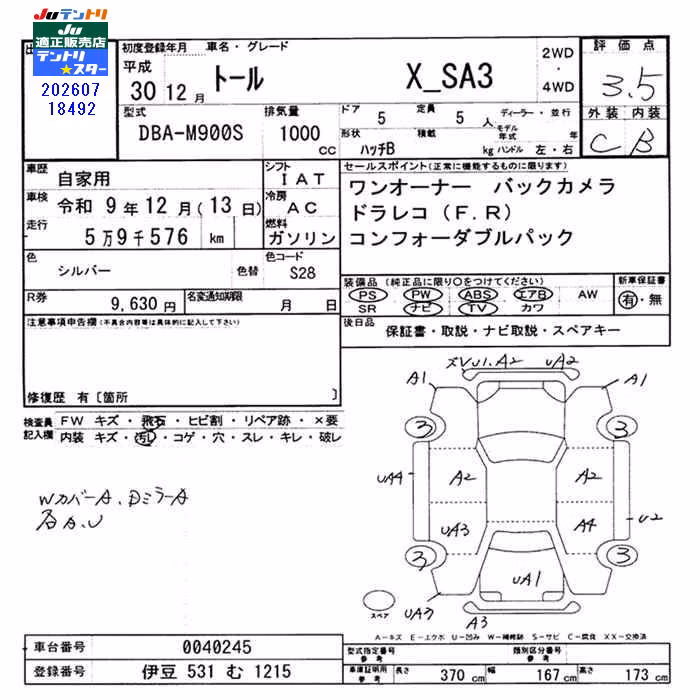 Juテントリ
JU
適正販売店
テントリ
★スター
202607
18492
初度登録年月 車名・グレード
平成
30 12月 トール X_SA3
2WD
・
4WD
評価点
3.5
外装 内装
C B
型式 排気量
DBA-M900S 1000 cc
ドア 5 定員 5 人 ディーラー・並行
モデル年式 年
形状 ハッチB 積載 kg ハンドル 左・右
車歴 自家用
シフト IAT
車検 令和 9年12月(13日)
冷房 AC
走行 5万9千576 km
燃料 ガソリン
色 シルバー 色替
色コード S28
R券 9,630円 名変通知期限 月 日
セールスポイント(正常に機能するものに限ります)
ワンオーナー バックカメラ
ドラレコ(F.R)
コンフォーダブルパック
装備品(純正品に限り○をつけてください) 新車保証書
PS PW ABS エアB AW
SR ナビ TV カワ
有・無
後日品 保証書・取説・ナビ取説・スペアキー
注意事項申告欄(不具合内容等は具体的に記入して下さい)
修復歴 有〔箇所 〕
検査員記入欄
FW キズ・飛石・ヒビ割・リペア跡・×要
内装 キズ・汚レ・コゲ・穴・スレ・キレ・破レ
WカバーA、DミラーA
各A.U
A2 UA2
A1 A1
3 3
UA4 A2 A2
UA3 A4 U2
3 3
UA1
スペア
A3
A-キズ E-エクボ U-凹み W-補修跡 S-サビ C-腐食 XX-交換済
車台番号 0040245
登録番号 伊豆 531 む 1215
型式指定番号 参考 類別区分番号 参考
車庫証明用 参考 長さ 370 cm 幅 167 cm 高さ 173 cm